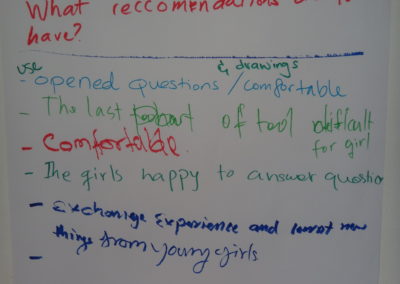 What reccomendations
have?
use & drawings
- opened questions / comfortable
- The last of tool difficult
for girl
- Comfortable.
- The girls happy to answer questio
- Exchange Experience and new
things from young girls
-